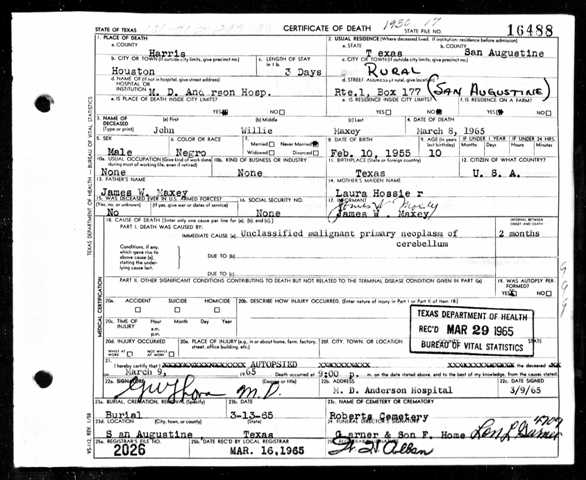 1930 17
STATE OF TEXAS CERTIFICATE OF DEATH 16488
1. PLACE OF DEATH 2. USUAL RESIDENCE (Where deceased lived. If institution: residence before admission)
a. COUNTY a. STATE b. COUNTY
Harris T exas San Augustine
b. CITY OR TOWN (If outside city limits, give precinct no.) c. LENGTH OF STAY c. CITY OR TOWN (If outside city limits, give precinct no.)
Houston 3 Days RURAL
d. NAME OF (If not in hospital, give street address) d. STREET ADDRESS (If rural, give location)
HOSPITAL OR
INSTITUTION M. D. And rson Hosp. Rte.1, Box 177 (SAN AUGUSTINE)
e. IS PLACE OF DEATH INSIDE CITY LIMITS? e. IS RESIDENCE INSIDE CITY LIMITS? f. IS RESIDENCE ON A FARM?
YES NO YES NO YES NO
3. NAME OF DECEASED (a) First (b) Middle (c) Last 4. DATE OF DEATH
(Type or print) John Willie Maxey March 8, 1965
5. SEX 6. COLOR OR RACE 7. Married Never Married 8. DATE OF BIRTH 9. AGE (In years last birthday) IF UNDER 1 YEAR IF UNDER 24 HRS.
Widowed Divorced Months Days Hours Minutes
Male Negro Feb. 10, 1955 10
10a. USUAL OCCUPATION (Give kind of work done during most of working life, even if retired) 10b. KIND OF BUSINESS OR INDUSTRY 11. BIRTHPLACE (State or foreign country) 12. CITIZEN OF WHAT COUNTRY?
None None Texas U. S. A.
13. FATHER'S NAME 14. MOTHER'S MAIDEN NAME
James W. Maxey Laura Hossie r
15. WAS DECEASED EVER IN U.S. ARMED FORCES? 16. SOCIAL SECURITY NO. 17. INFORMANT
(Yes, no, or unknown) (If yes, give war or dates of service) James W. Maxey
No None James W. Maxey
18. CAUSE OF DEATH (Enter only one cause per line for (a), (b), and (c).) INTERVAL BETWEEN ONSET AND DEATH
PART I. DEATH WAS CAUSED BY:
IMMEDIATE CAUSE (a) Unclassified malignant primary neoplasm of 2 months
cerebellum
Conditions, if any, which gave rise to above cause (a), stating the underlying cause last.
DUE TO (b)
DUE TO (c)
PART II. OTHER SIGNIFICANT CONDITIONS CONTRIBUTING TO DEATH BUT NOT RELATED TO THE TERMINAL DISEASE CONDITION GIVEN IN PART I(a) 19. WAS AUTOPSY PERFORMED?
YES NO
20a. ACCIDENT SUICIDE HOMICIDE 20b. DESCRIBE HOW INJURY OCCURRED. (Enter nature of injury in Part I or Part II of item 18.)
20c. TIME OF INJURY Hour Month Day Year
a.m.
p.m.
20d. INJURY OCCURRED 20e. PLACE OF INJURY (e.g., in or about home, farm, factory, street, office building, etc.) 20f. CITY, TOWN, OR LOCATION COUNTY STATE
WHILE AT WORK NOT WHILE AT WORK
TEXAS DEPARTMENT OF HEALTH
REC'D MAR 29 1965
BUREAU OF VITAL STATISTICS
21. I hereby AUTOPSIED the deceased
March 9, 1965 Death occurred at 9:00 p. m. on the date stated above, and to the best of my knowledge, from the causes stated.
22a. SIGNATURE (Degree or title) 22b. ADDRESS 22c. DATE SIGNED
M.D. M. D. Anderson Hospital 3/9/65
23a. BURIAL, CREMATION, REMOVAL (Specify) 23b. DATE 23c. NAME OF CEMETERY OR CREMATORY
Burial 3-13-65 Roberts Cemetary
23d. LOCATION (City, town, or county) (State) 24. FUNERAL DIRECTOR'S SIGNATURE
S an Augustine Texas Garner & Son F. Home 4707
25a. REGISTRAR'S FILE NO. 25b. DATE REC'D BY LOCAL REGISTRAR
2026 MAR. 16,1965
TEXAS DEPARTMENT OF HEALTH — BUREAU OF VITAL STATISTICS
MEDICAL CERTIFICATION
VS-112 REV. 1/58
9
9
9